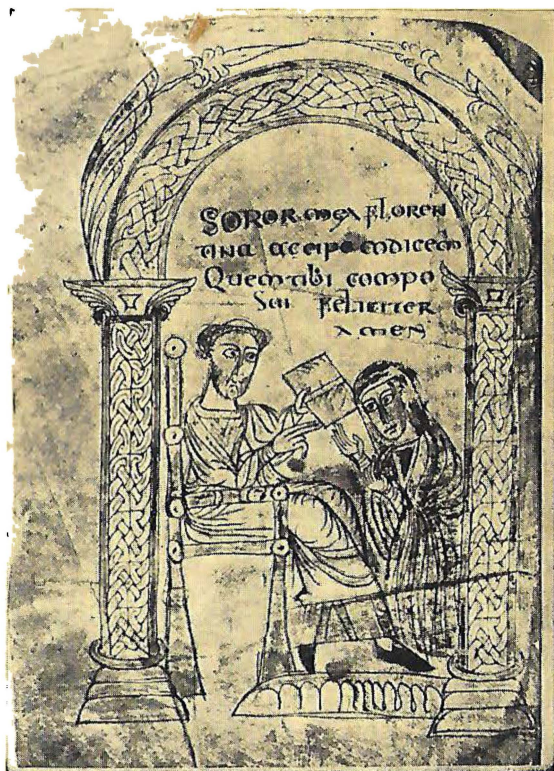 SOROR mea floren
tina accipe codicem
Quem tibi compo
Sui feliciter
amen